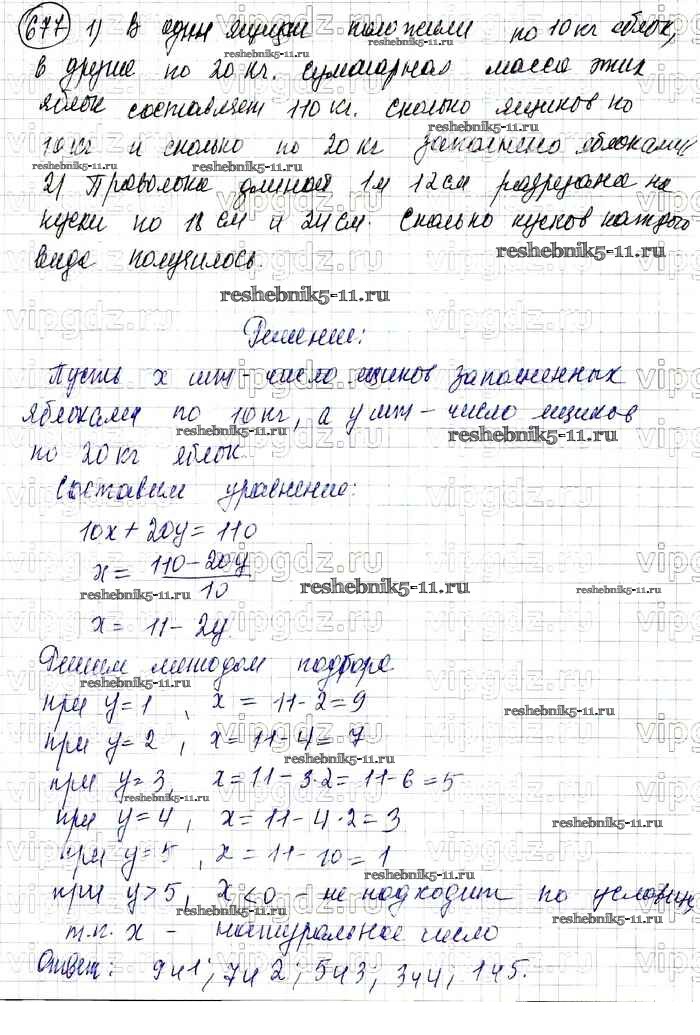 677 1) В одни ящики положили по 10 кг яблок,
в другие по 20 кг. суммарная масса этих
яблок составляет 110 кг. сколько ящиков по
10 кг и сколько по 20 кг заполнено яблоками
2) Проволока длиной 1м 12см разрезана на
куски по 18 см и 24 см. Сколько кусков каждого
вида получилось.
reshebnik5-11.ru
Решение:
Пусть x шт - число ящиков заполненных
яблоками по 10 кг, а y шт - число ящиков
по 20 кг яблок.
Составим уравнение:
10x + 20y = 110
x = (110 - 20y)/10
reshebnik5-11.ru
x = 11 - 2y
Решим методом подбора
при y = 1, x = 11 - 2 = 9
при y = 2, x = 11 - 4 = 7
при y = 3, x = 11 - 3·2 = 11 - 6 = 5
при y = 4, x = 11 - 4·2 = 3
при y = 5, x = 11 - 10 = 1
при y > 5, x < 0 - не подходит по условию,
т.к. x - натуральное число
Ответ: 9 и 1; 7 и 2; 5 и 3; 3 и 4; 1 и 5.